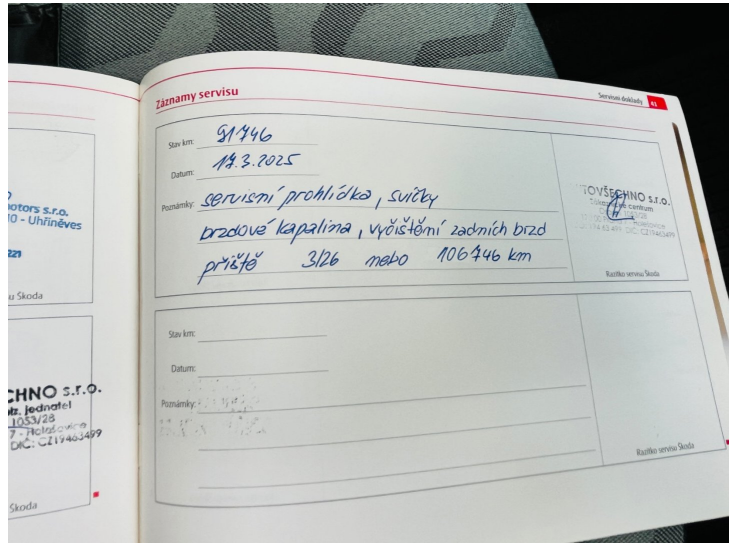 Záznamy servisu
Servisní doklady 41
Stav km: 91746
Datum: 17.3.2025
Poznámky: servisní prohlídka, svíčky
brzdové kapalina, vyčištění zadních brzd
příště 3/26 nebo 106746 km
TOVŠECHNO s.r.o.
Zákaznické centrum
1053/28
Holešovice
DIČ: CZ19463499
Razítko servisu Škoda
Stav km:
Datum:
Poznámky:
Razítko servisu Škoda
motors s.r.o.
10 - Uhříněves
221
su Škoda
CHNO s.r.o.
jednatel
1053/28
7 - Holešovice
DIČ: CZ19463499
Škoda